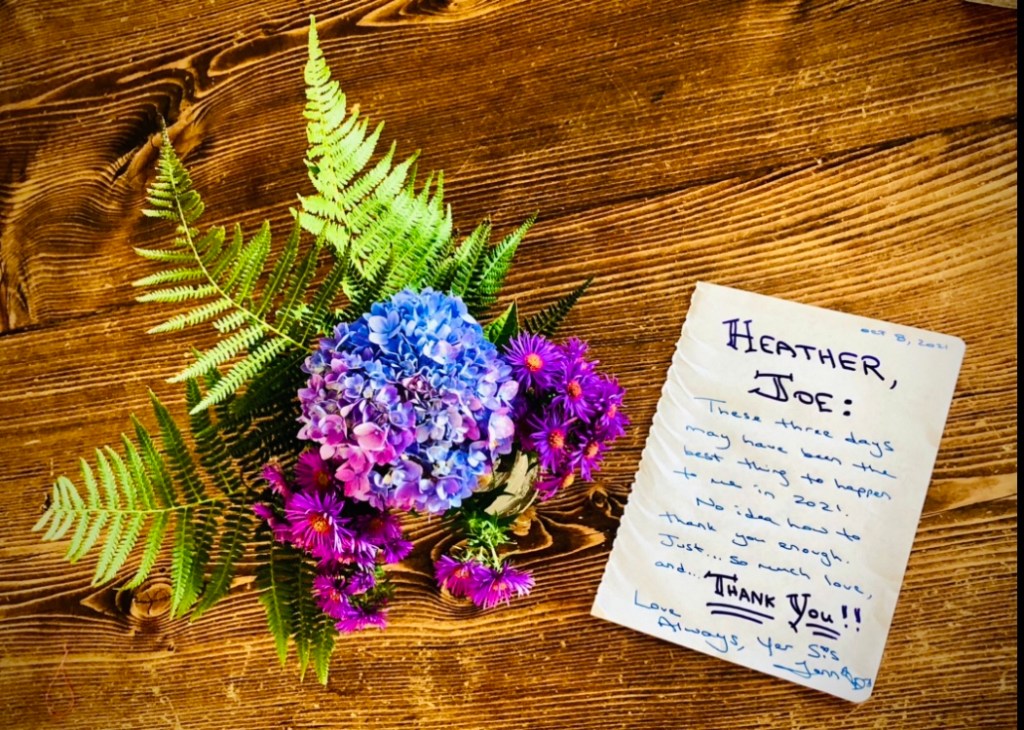 Oct 8, 2021
HEATHER,
JOE:
These three days
may have been the
best thing to happen
to me in 2021.
No idea how to
thank you enough.
Just... so much love,
and... THANK YOU!!
Love
Always, Yer Sis
Jenn